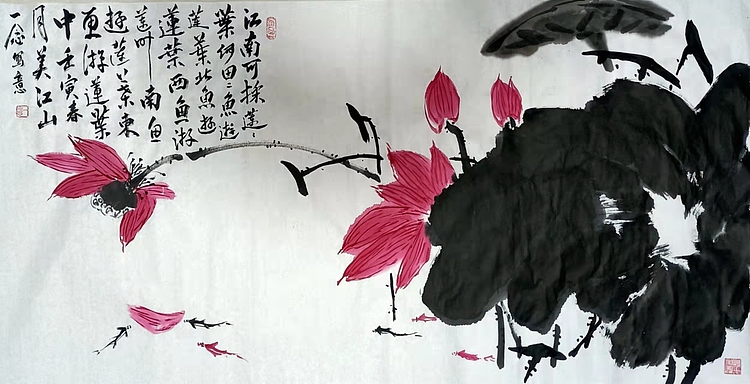 江南可採蓮〻
葉何田〻魚遊
蓮葉北魚遊
蓮葉西魚游
蓮叶南魚
遊蓮葉東
魚游蓮葉
中壬寅春
月美江山
一念寫意